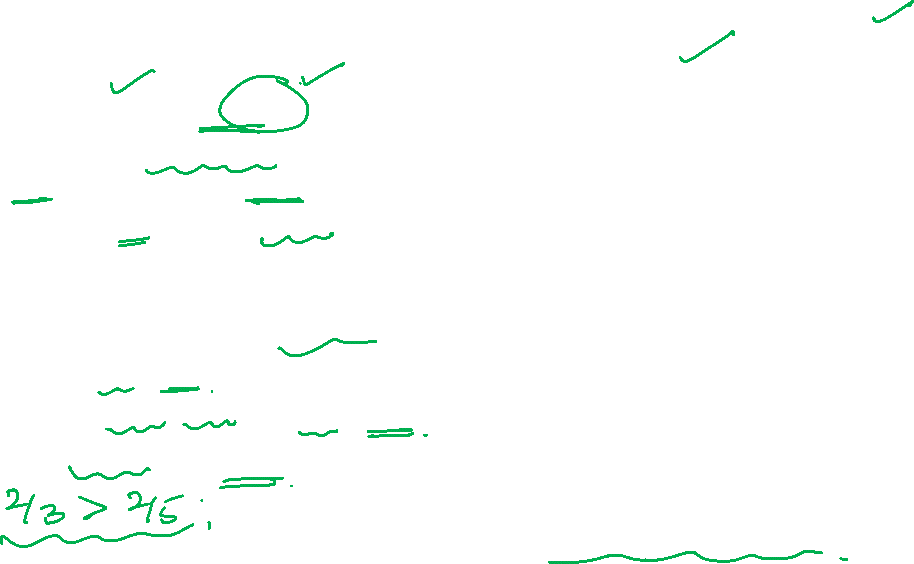 2/3 > 2/5;